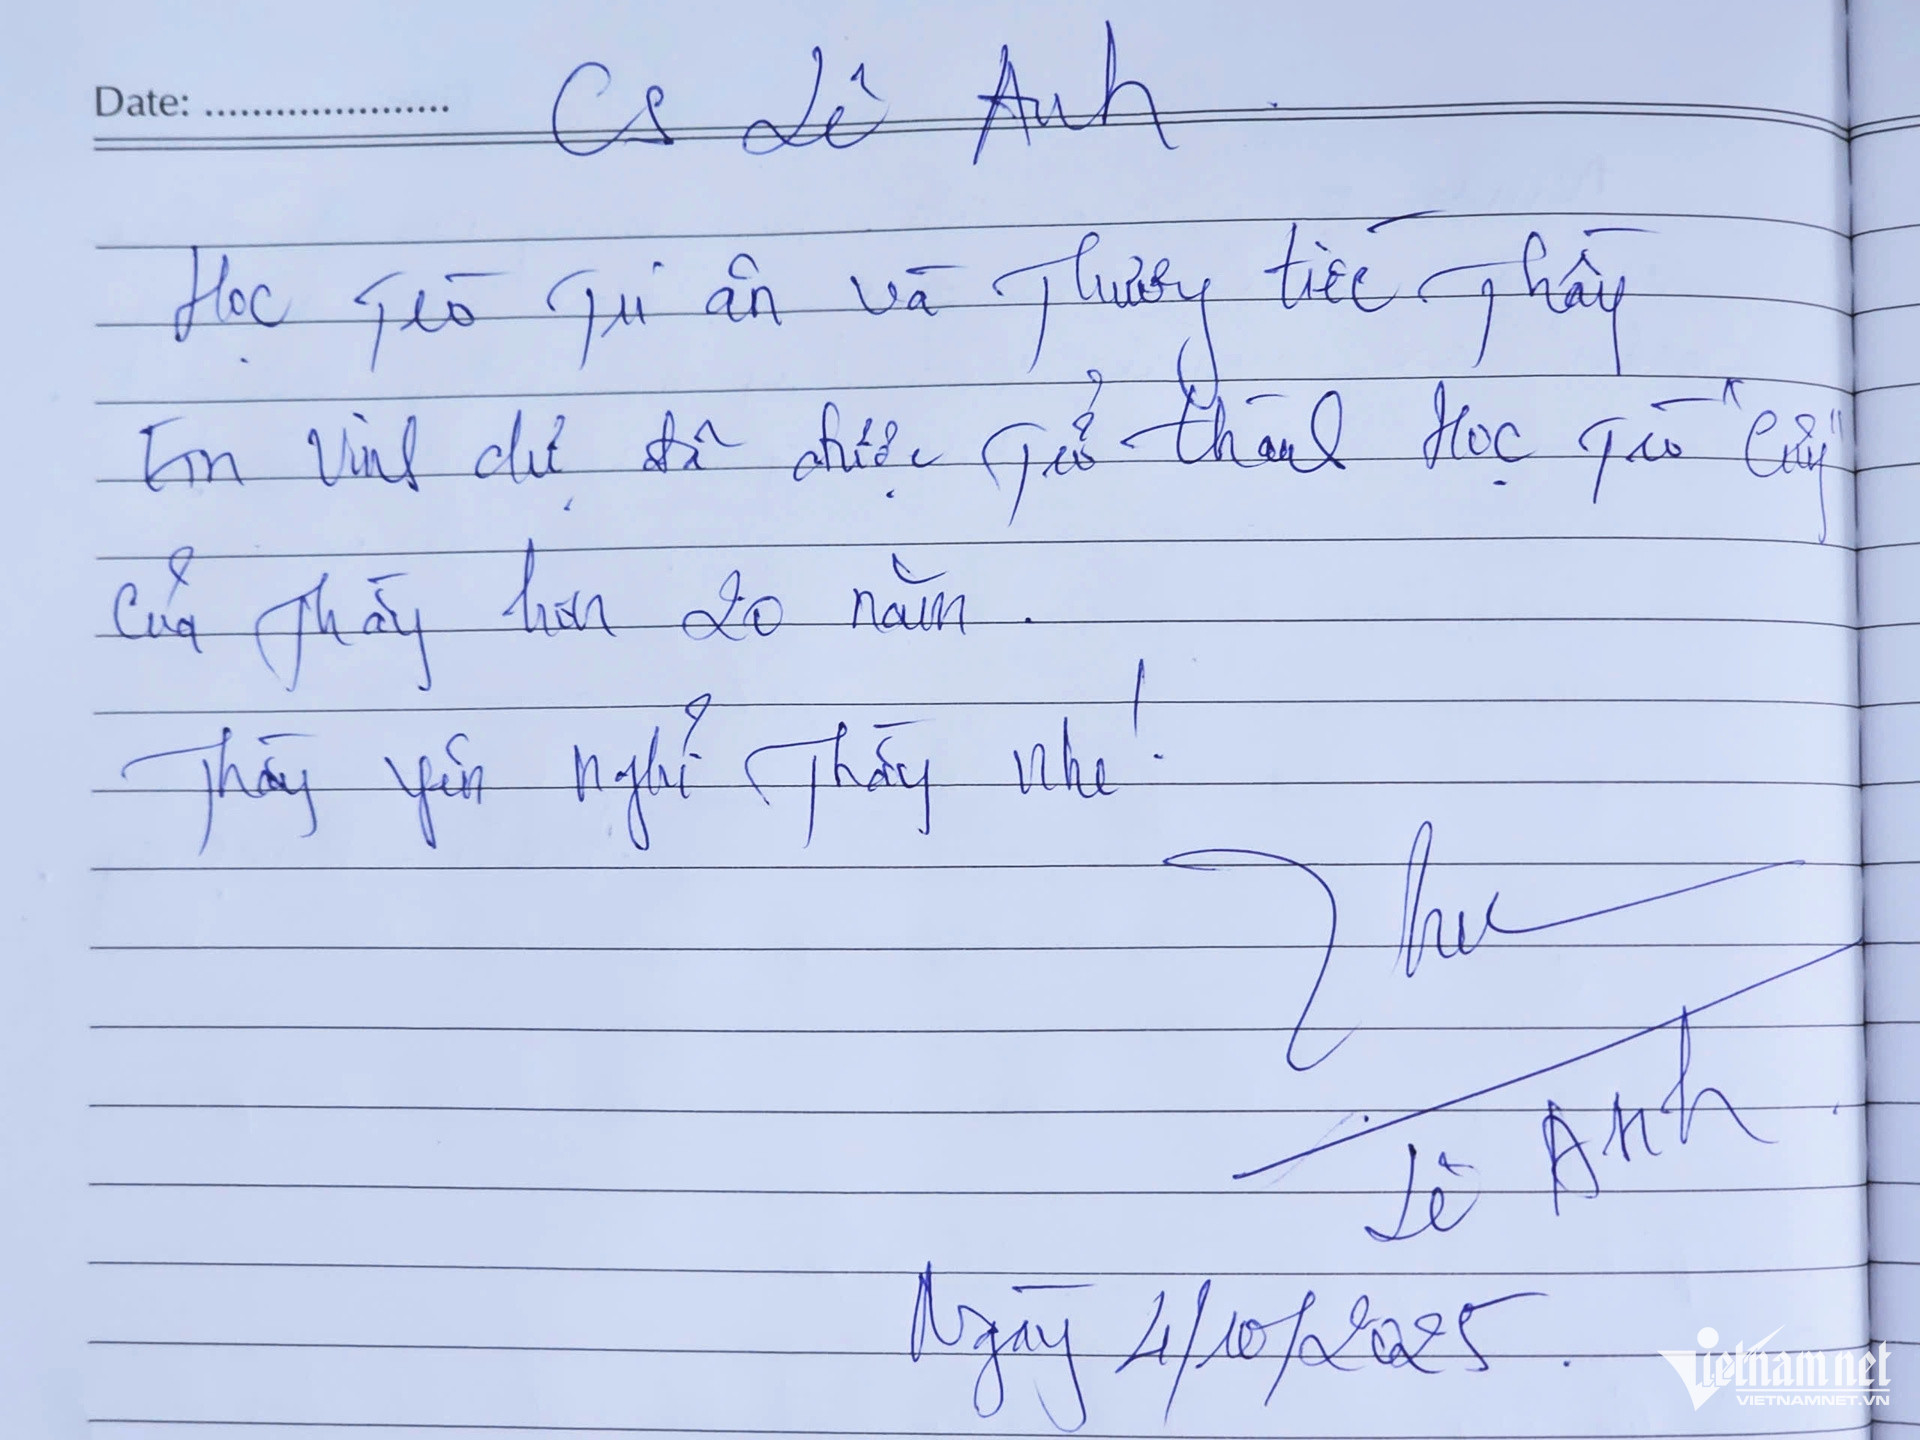 Date: .....................
Cs Lê Anh
Học Trò Tri ân và Thương tiếc Thầy
Em vinh dự đã được Trở thành Học Trò "Cưng"
của Thầy hơn 20 năm.
Thầy yên nghỉ Thầy nhe!
Lê Anh
Ngày 4/10/2025.
Vietnamnet
VIETNAMNET.VN